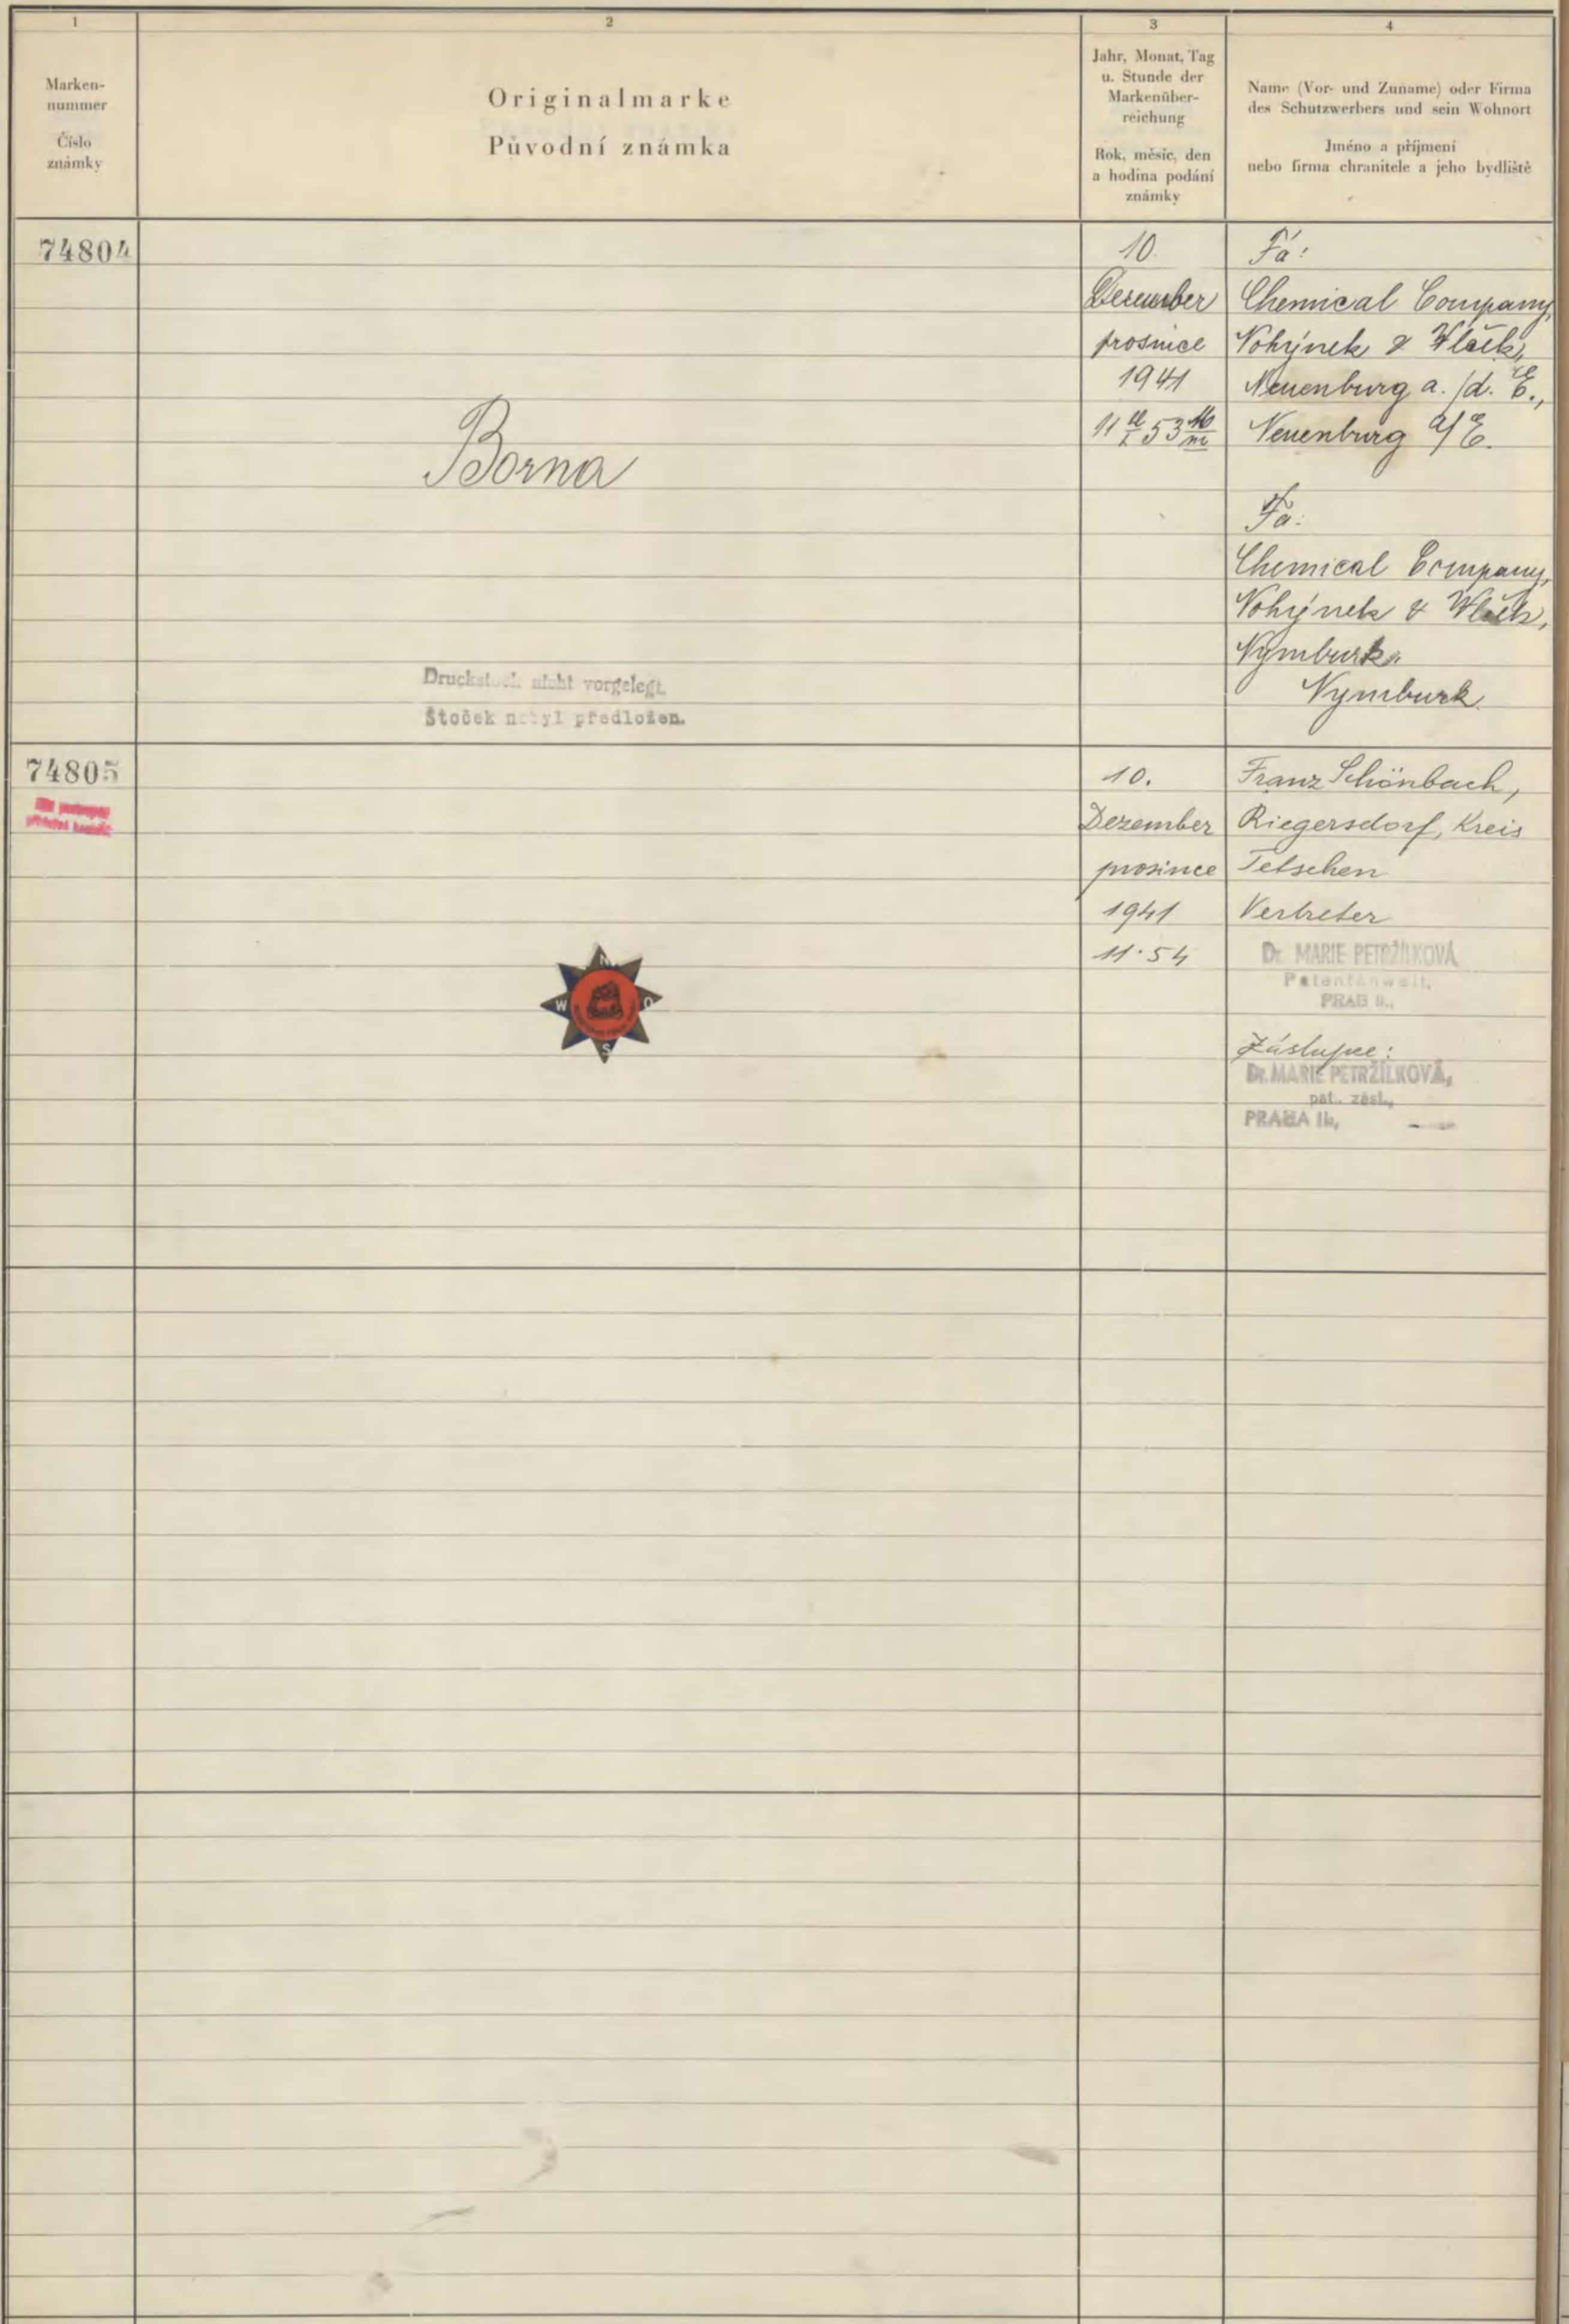 1
2
3
4
Marken-
nummer
Číslo
známky
Originalmarke
Původní známka
Jahr, Monat, Tag
u. Stunde der
Markenüber-
reichung
Rok, měsíc, den
a hodina podání
známky
Name (Vor- und Zuname) oder Firma
des Schutzwerbers und sein Wohnort
Jméno a příjmení
nebo firma chranitele a jeho bydliště
74804
Borna
Druckstock nicht vorgelegt.
Štoček nebyl předložen.
10.
Dezember
prosince
1941
11 53
Fa:
Chemical Company,
Nohýnek & Vlček,
Neuenburg a./d. E.,
Neuenburg a/E.
Fa:
Chemical Company,
Nohýnek &
Nymburk,
Nymburk.
74805
N
W O
S
10.
Dezember
prosince
1941
11·54
Franz Schönbach,
Riegersdorf, Kreis
Tetschen
Vertreter
Dr. MARIE PETRŽÍLKOVÁ
Patentanwalt,
PRAG II.,
Zástupce:
Dr. MARIE PETRŽÍLKOVÁ,
pat. zást.,
PRAHA II.,